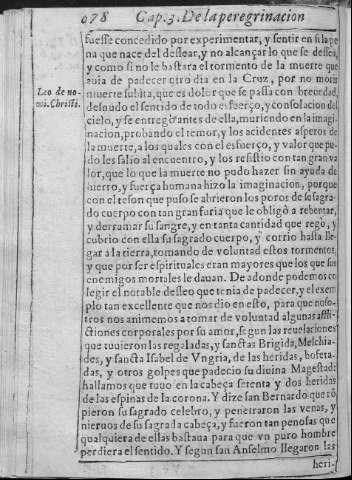 078 Cap. 3. De la peregrinacion
fuesse concedido por experimentar, y sentir en si la pe
na que nace del dessear, y no alcançar lo que se dessea,
y como si no le bastara el tormento de la muerte que
auia de padecer otro dia en la Cruz, por no morir
Leo de no-
mi. Christi.
muerte subita, que es dolor que se passa con breuedad,
desnudo el sentido de todo esfuerço, y consolacion del
cielo, y se entregò antes de ella, muriendo en la imagi
nacion, probando el temor, y los acidentes asperos de
la muerte, a los quales con el esfuerço, y valor que pu-
do les salio al encuentro, y los resistio con tan gran va
lor, que lo que la muerte no pudo hazer sin ayuda de
hierro, y fuerça humana hizo la imaginacion, porque
con el teson que puso se abrieron los poros de su sagra-
do cuerpo con tan gran furia que le obligò a rebentar,
y derramar su sangre, y en tanta cantidad que regò, y
cubrio con ella su sagrado cuerpo, y corrio hasta lle-
gar a la tierra, tomando de voluntad estos tormentos,
y que por ser espirituales eran mayores que los que sus
enemigos mortales le dauan. De adonde podemos co
legir el notable desseo que tenia de padecer, y el exem
plo tan excellente que nos dio en esto, para que noso-
tros nos animemos a tomar de voluntad algunas affli-
ctiones corporales por su amor, segun las reuelaciones
que tuuieron las regaladas, y sanctas Brigida, Melchia-
des, y sancta Isabel de Vngria, de las heridas, bofeta-
das, y otros golpes que padecio su diuina Magestad:
hallamos que tuuo en la cabeça setenta y dos heridas
de las espinas de la corona. Y dize san Bernardo que rõ
pieron su sagrado celebro, y penetraron las venas, y
nieruos de su sagrada cabeça, y fueron tan penosas que
qualquiera de ellas bastaua para que vn puro hombre
perdiera el sentido. Y segun san Anselmo llegaron las
heri-